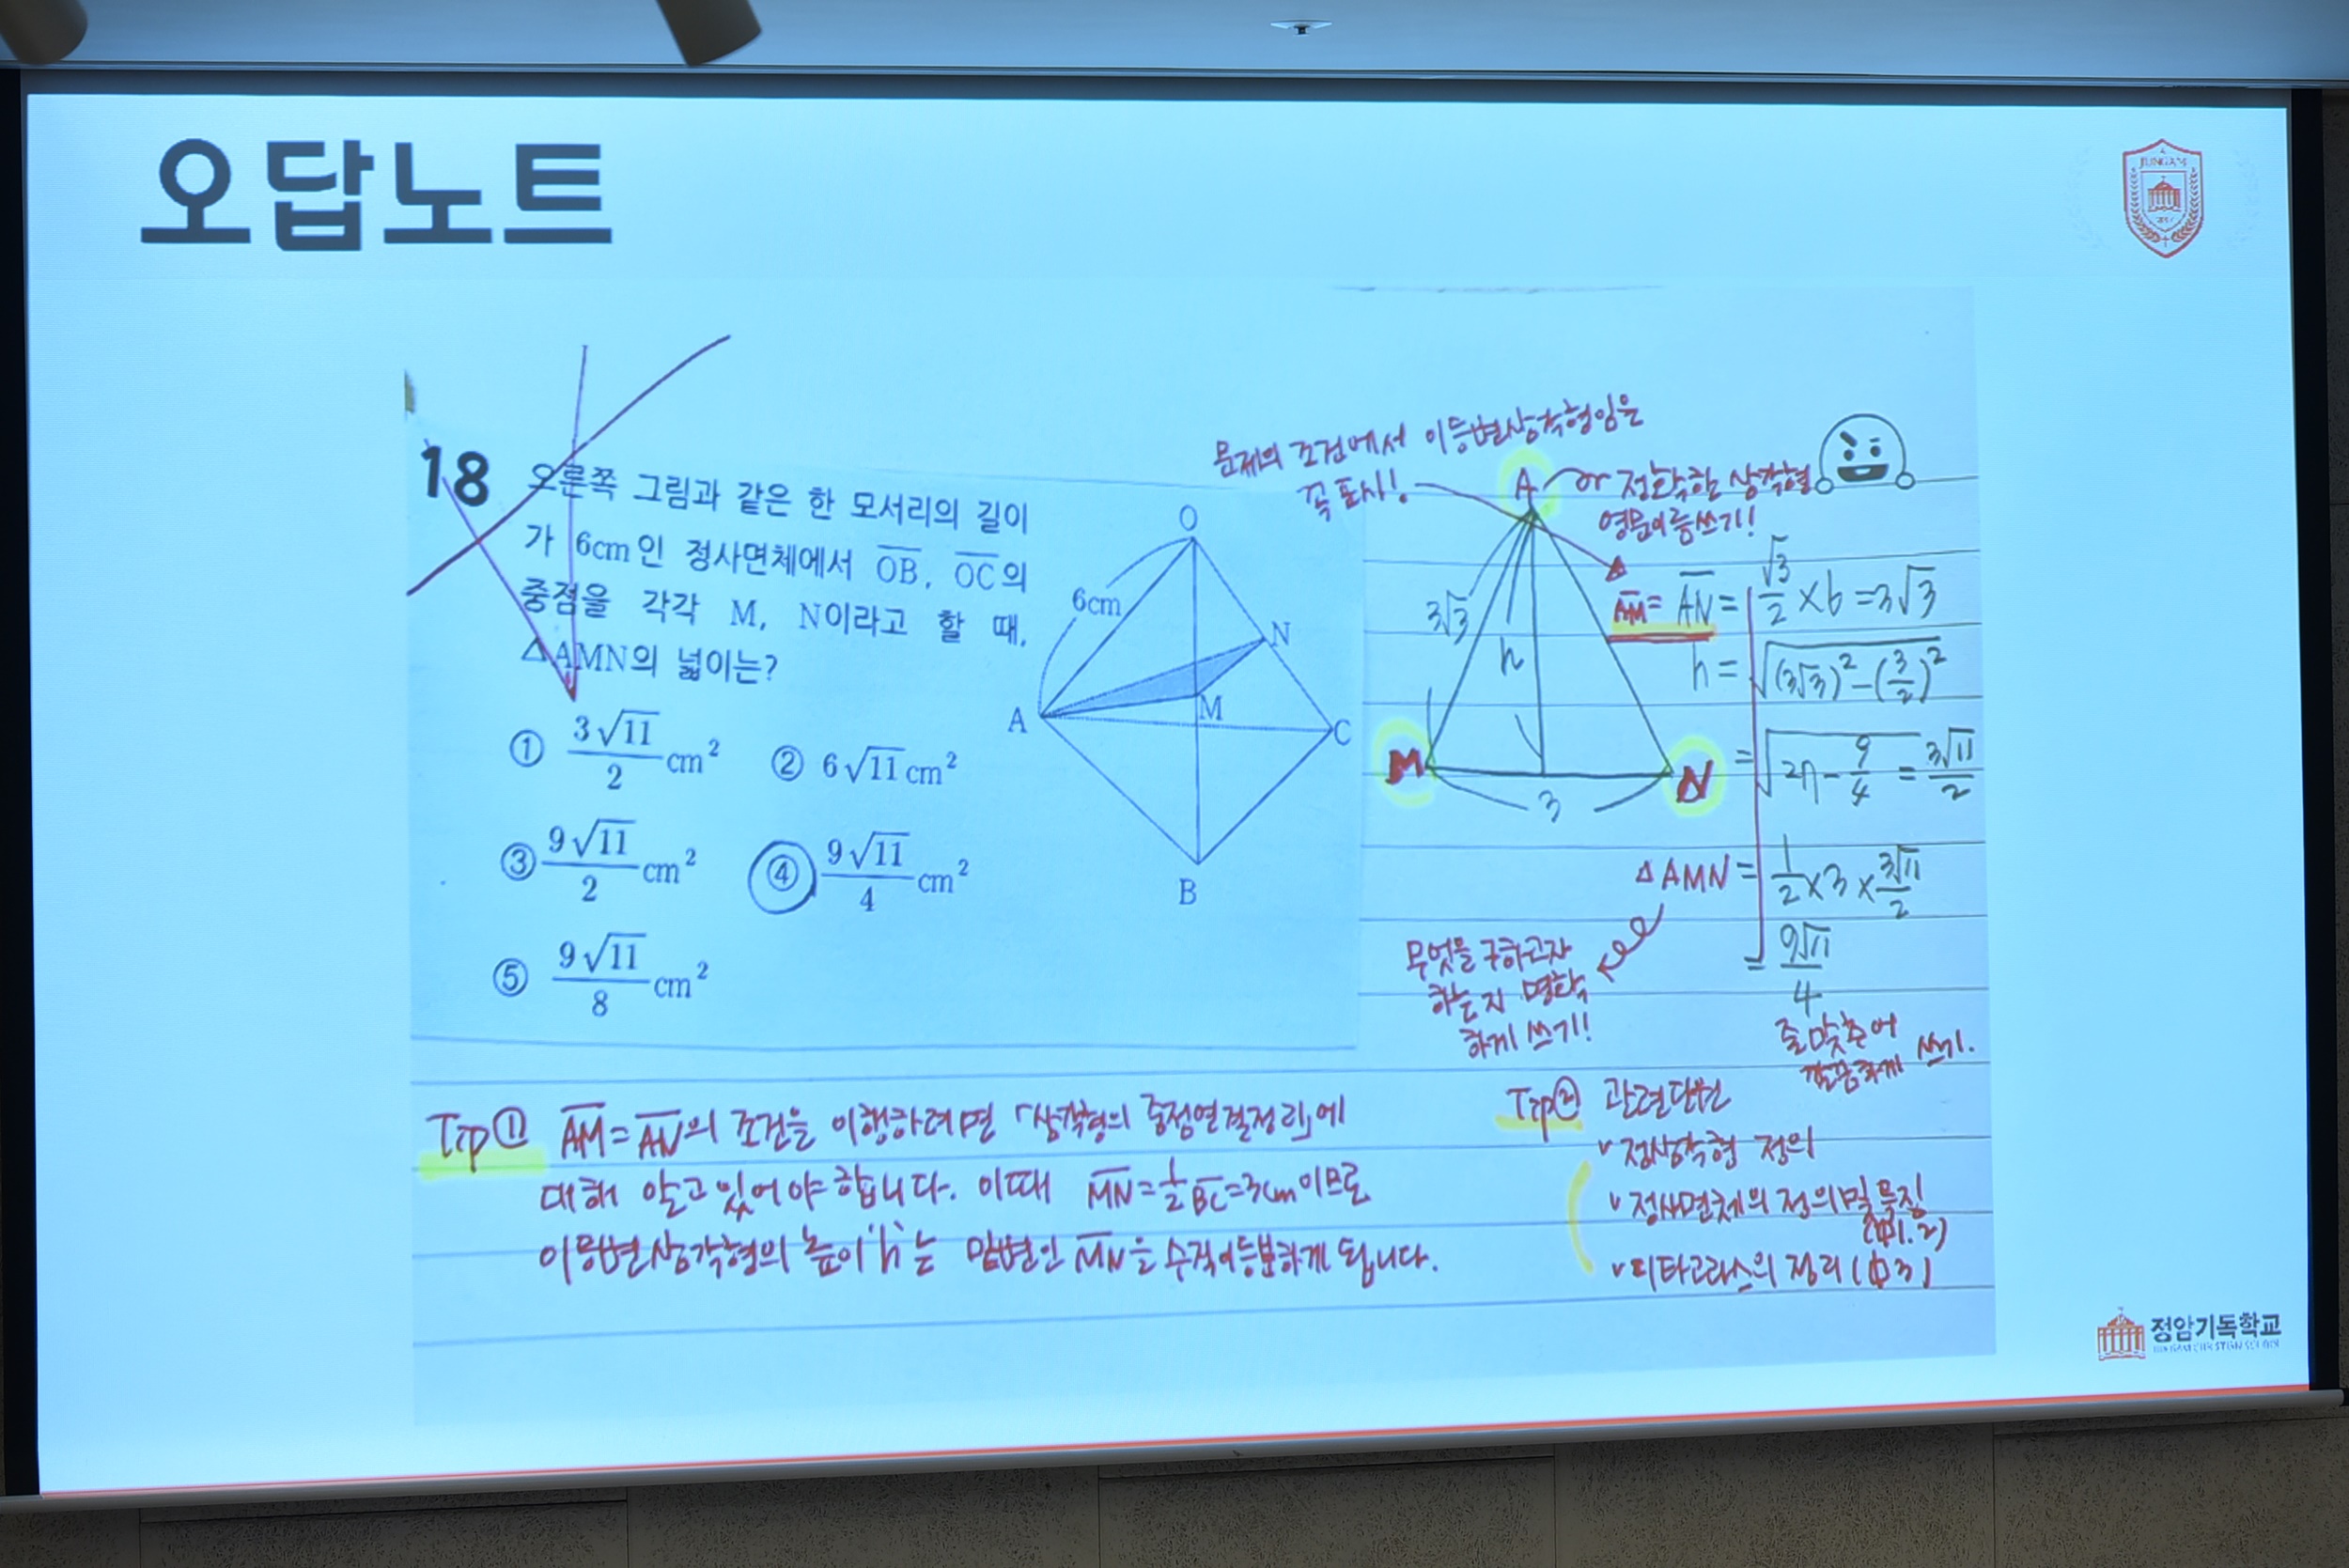 오답노트
JUNGAM
18 오른쪽 그림과 같은 한 모서리의 길이
가 6cm인 정사면체에서 OB, OC의
중점을 각각 M, N이라고 할 때,
△AMN의 넓이는?
① 3√11/2 cm² ② 6√11 cm²
③ 9√11/2 cm² ④ 9√11/4 cm²
⑤ 9√11/8 cm²
O
6cm
N
A
M
C
B
문제의 조건에서 이등변삼각형임을
꼭 표시!
A or 정확한 삼각형
영문이름쓰기!
3√3
h
M
N
3
AM = AN = √3/2 × 6 = 3√3
h = √(3√3)² - (3/2)²
= √27 - 9/4 = 3√11/2
△AMN = 1/2 × 3 × 3√11/2
= 9√11/4
무엇을 구하고자
하는지 명확
하게 쓰기!
줄 맞추어
깔끔하게 쓰기.
Tip① AM = AN의 조건을 이행하려면 「삼각형의 중점연결정리」에
대해 알고 있어야 합니다. 이때 MN = 1/2 BC = 3cm 이므로
이등변삼각형의 높이 'h'는 밑변인 MN을 수직이등분하게 됩니다.
Tip② 관련단원
✓정삼각형 정의
✓정사면체의 정의 및 특징
(中1.2)
✓피타고라스의 정리 (中3)
정암기독학교
JUNGAM CHRISTIAN SCHOOL